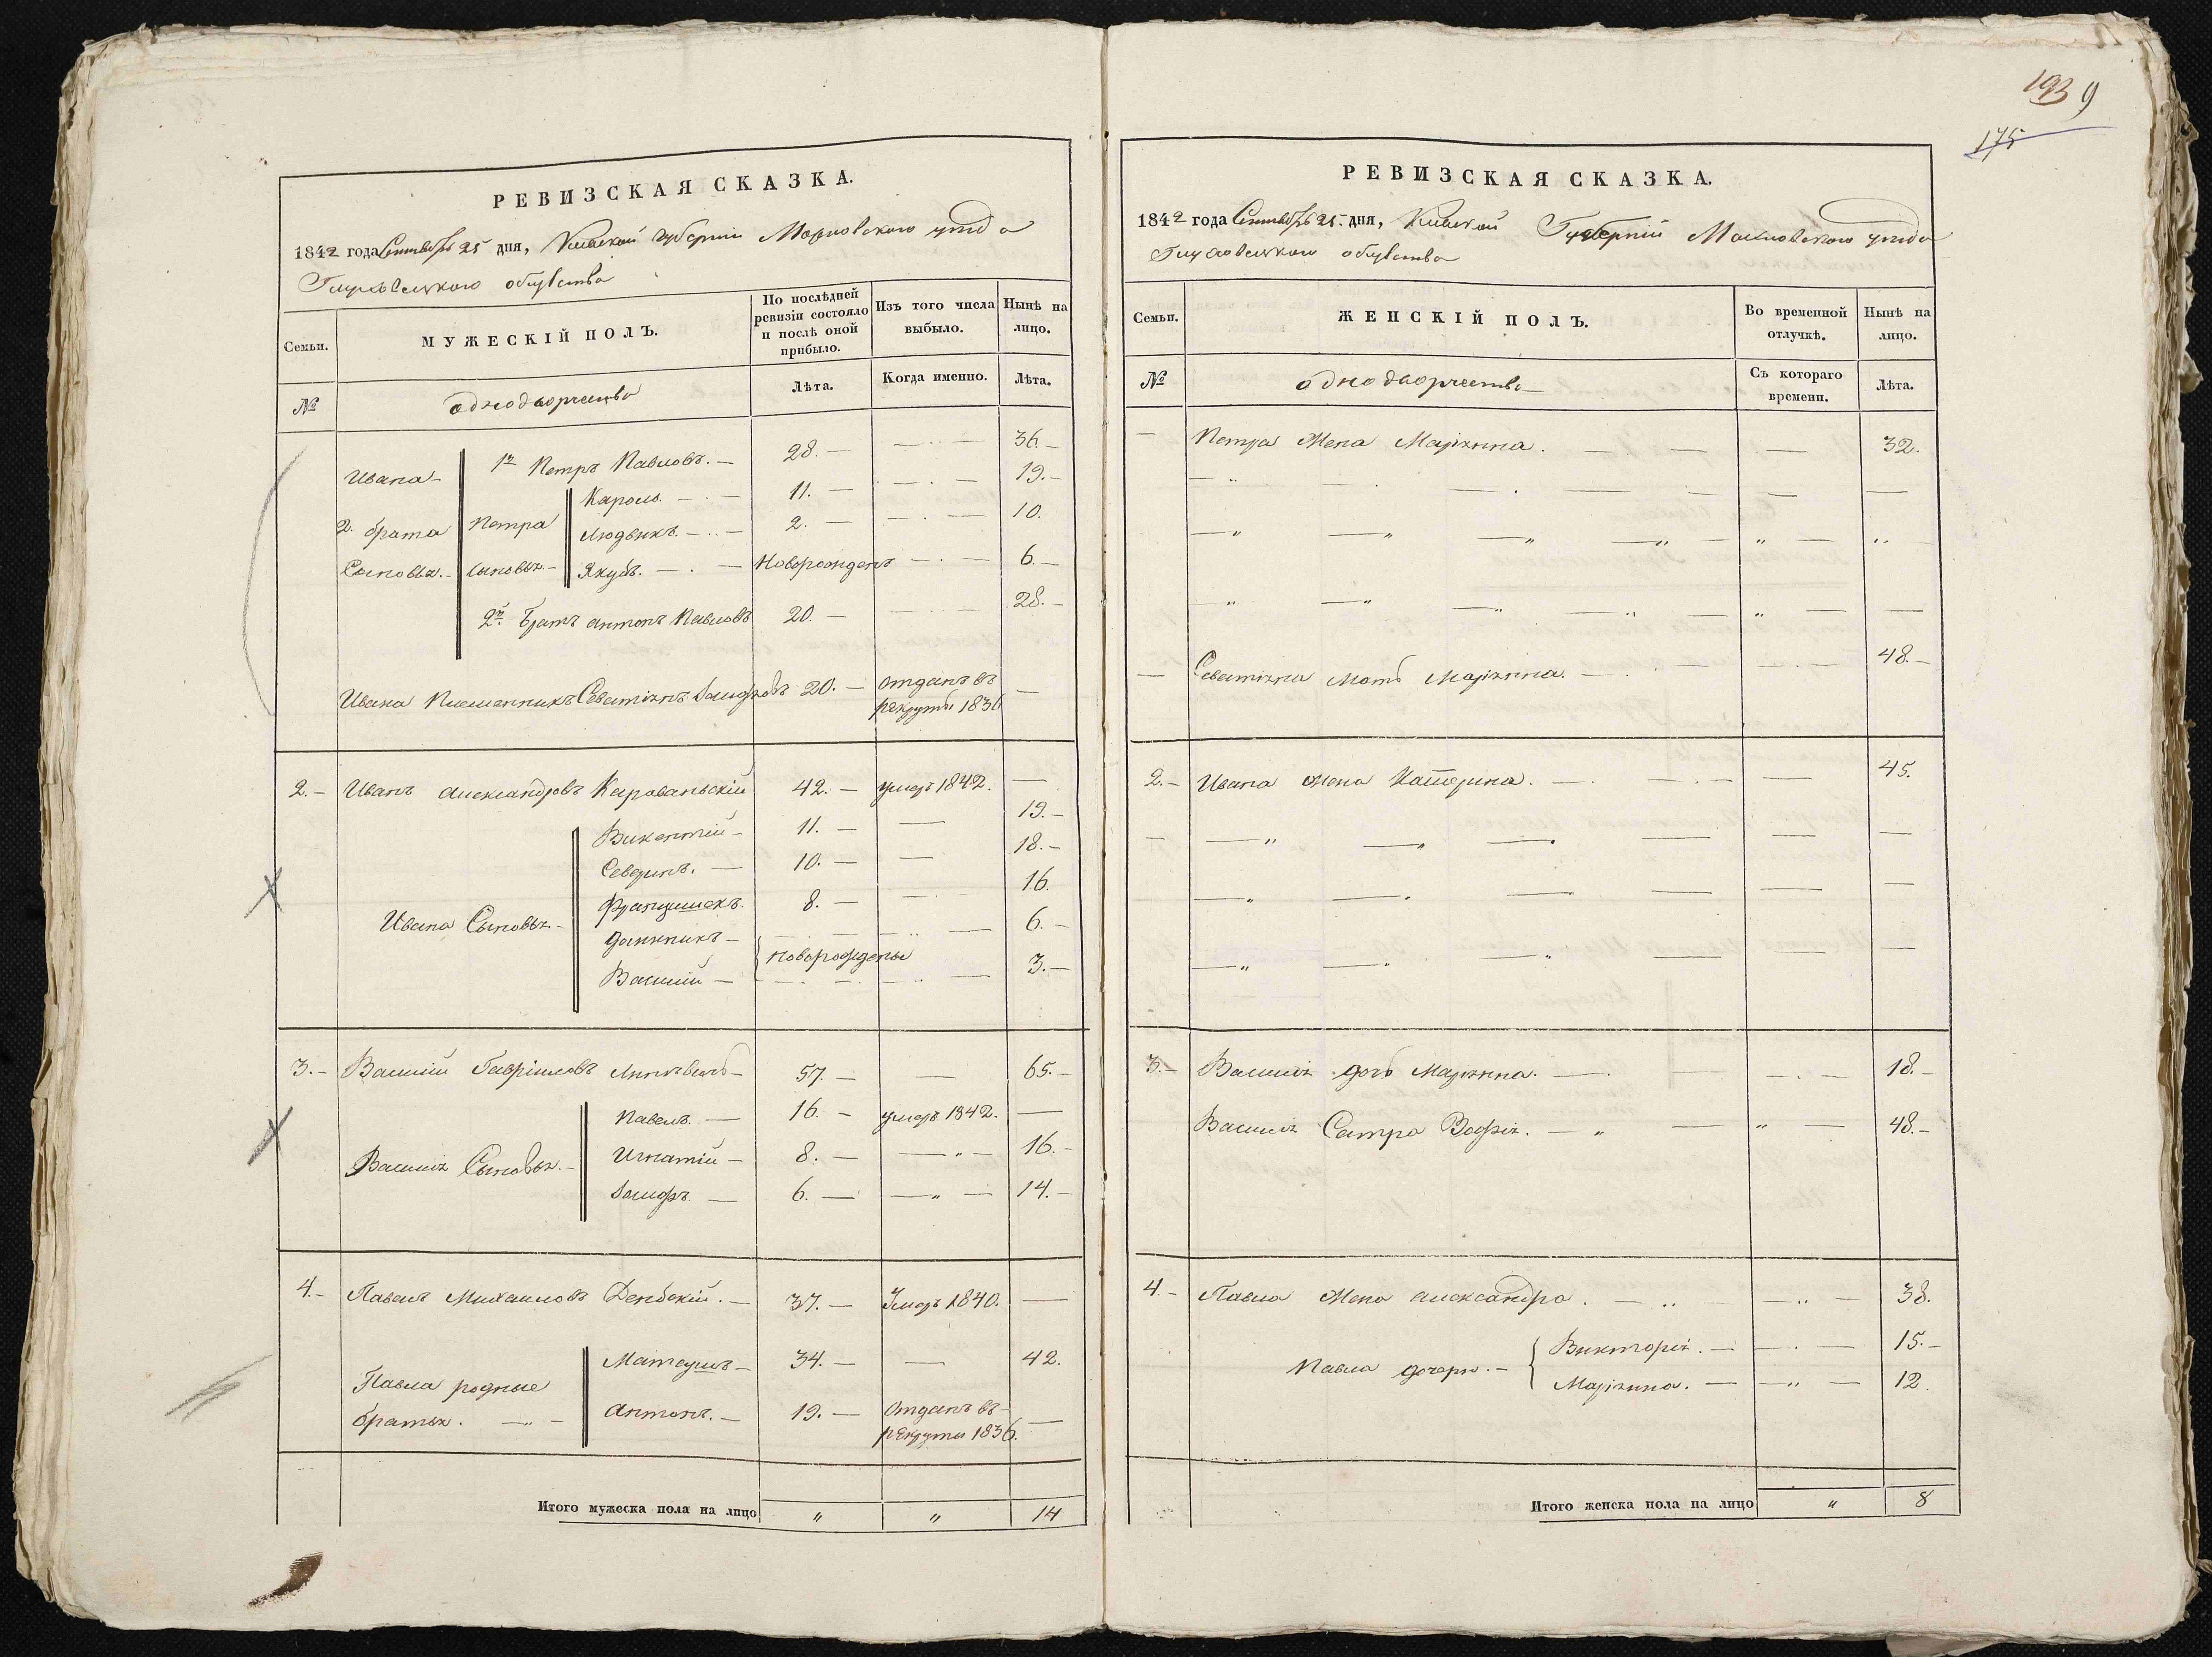 РЕВИЗСКАЯ СКАЗКА.
1842 года Сентября 25 дня, Кіевской губерніи уезда
общества
Семьи.
МУЖЕСКІЙ ПОЛЪ.
По послѣдней ревизіи состояло и послѣ оной прибыло.
Изъ того числа выбыло.
Нынѣ на лицо.
№
однодворчества
Лѣта.
Когда именно.
Лѣта.
Ивана
2. брата
Сыновья.
1й Петръ Павловъ. 28. 36.
Петра сыновья
Кароль. 11. 19.
Людвикъ. 2. 10.
Якубъ. Новорожденъ 6.
2й. Братъ антонъ Павловъ 20. 28.
Ивана Племянникъ 20. отданъ въ рекруты 1836
2. Иванъ александровъ 42. умеръ 1842.
Ивана Сыновья
Викентій 11. 19.
Северинъ. 10. 18.
Францишекъ. 8. 16.
6.
Василій 3.
новорождены
3. Василій Гавріиловъ 57. 65.
Василія Сыновья.
Павелъ. 16. умеръ 1842.
Игнатій 8. 16.
6. 14.
4. Павелъ Михаиловъ Денбскій. 37. Умеръ 1840.
Павла родные братья.
Матеушъ 34. 42.
антонъ. 19. Отданъ въ рекруты 1836.
Итого мужеска пола на лицо " " 14
193 9
175
РЕВИЗСКАЯ СКАЗКА.
1842 года Сентября 25. дня, Кіевской Губерніи уезда
общества
Семьи.
ЖЕНСКІЙ ПОЛЪ.
Во временной отлучкѣ.
Нынѣ на лицо.
№
однодворчества
Съ котораго времени.
Лѣта.
Петра Жена Маріянна. 32.
мать Маріянна. 48.
2. Ивана жена Катерина. 45.
3. Василія дочь Маріянна. 18.
Василія Сестра Зофія. 48.
4. Павла Жена александра. 38.
Павла дочери.
Викторія. 15.
Маріянна. 12.
Итого женска пола на лицо " 8